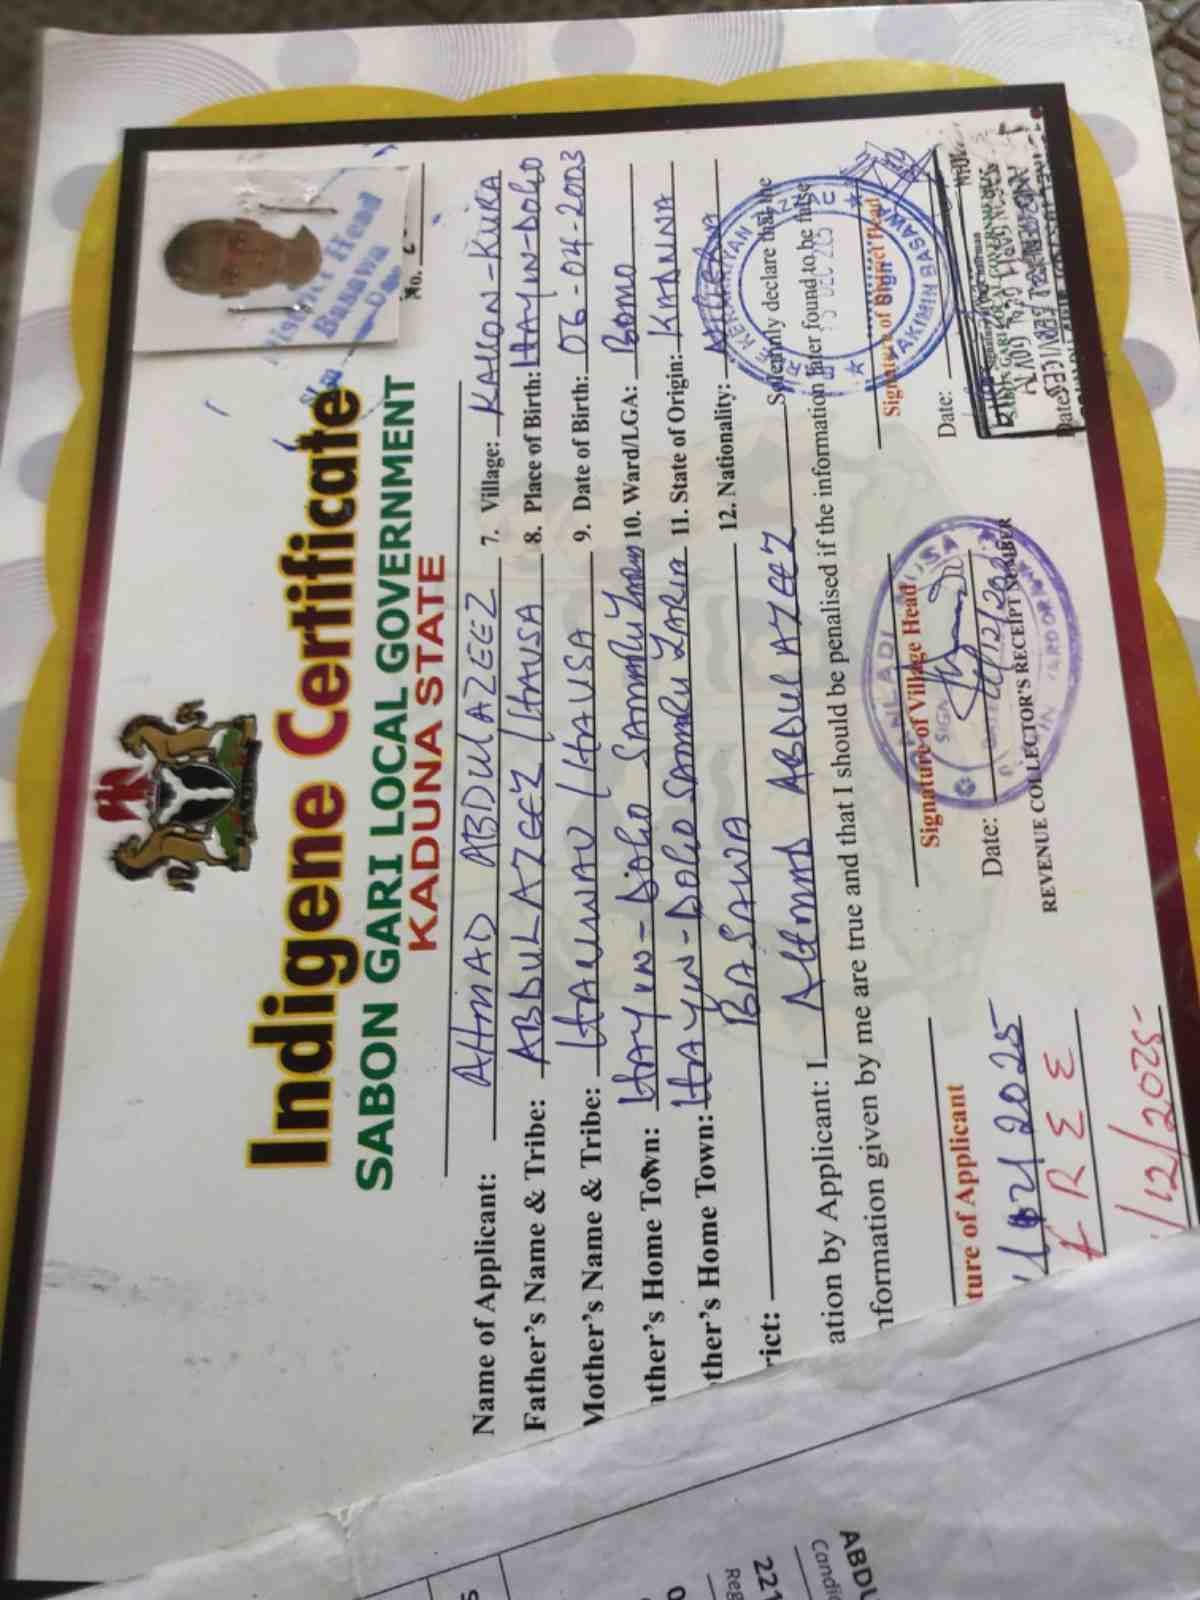 Indigene Certificate
SABON GARI LOCAL GOVERNMENT
KADUNA STATE
District Head
Basawa
No.
Name of Applicant: AHMAD ABDULAZEEZ
Father's Name & Tribe: ABDULAZEEZ / HAUSA
Mother's Name & Tribe: HAUWAU / HAUSA
ather's Home Town: HAYIN-DOGO SAMARU ZARIA
ther's Home Town: HAYIN-DOGO SAMARU ZARIA
rict: BASAWA
7. Village: KALLON-KURA
8. Place of Birth: HAYIN-DOGO
9. Date of Birth: 06-04-2003
10. Ward/LGA: BOMO
11. State of Origin: KADUNA
12. Nationality:
ation by Applicant: I AHMAD ABDULAZEEZ Solemnly declare that the
nformation given by me are true and that I should be penalised if the information later found to be false
ture of Applicant
2025
FREE
/12/2025
Signature of Village Head
SIGN
Date:
REVENUE COLLECTOR'S RECEIPT NUMBER
Signature of District Head
HAKIMIN BASAWA
Sign
Date:
Date:
221
Reg
ABDU
Candi